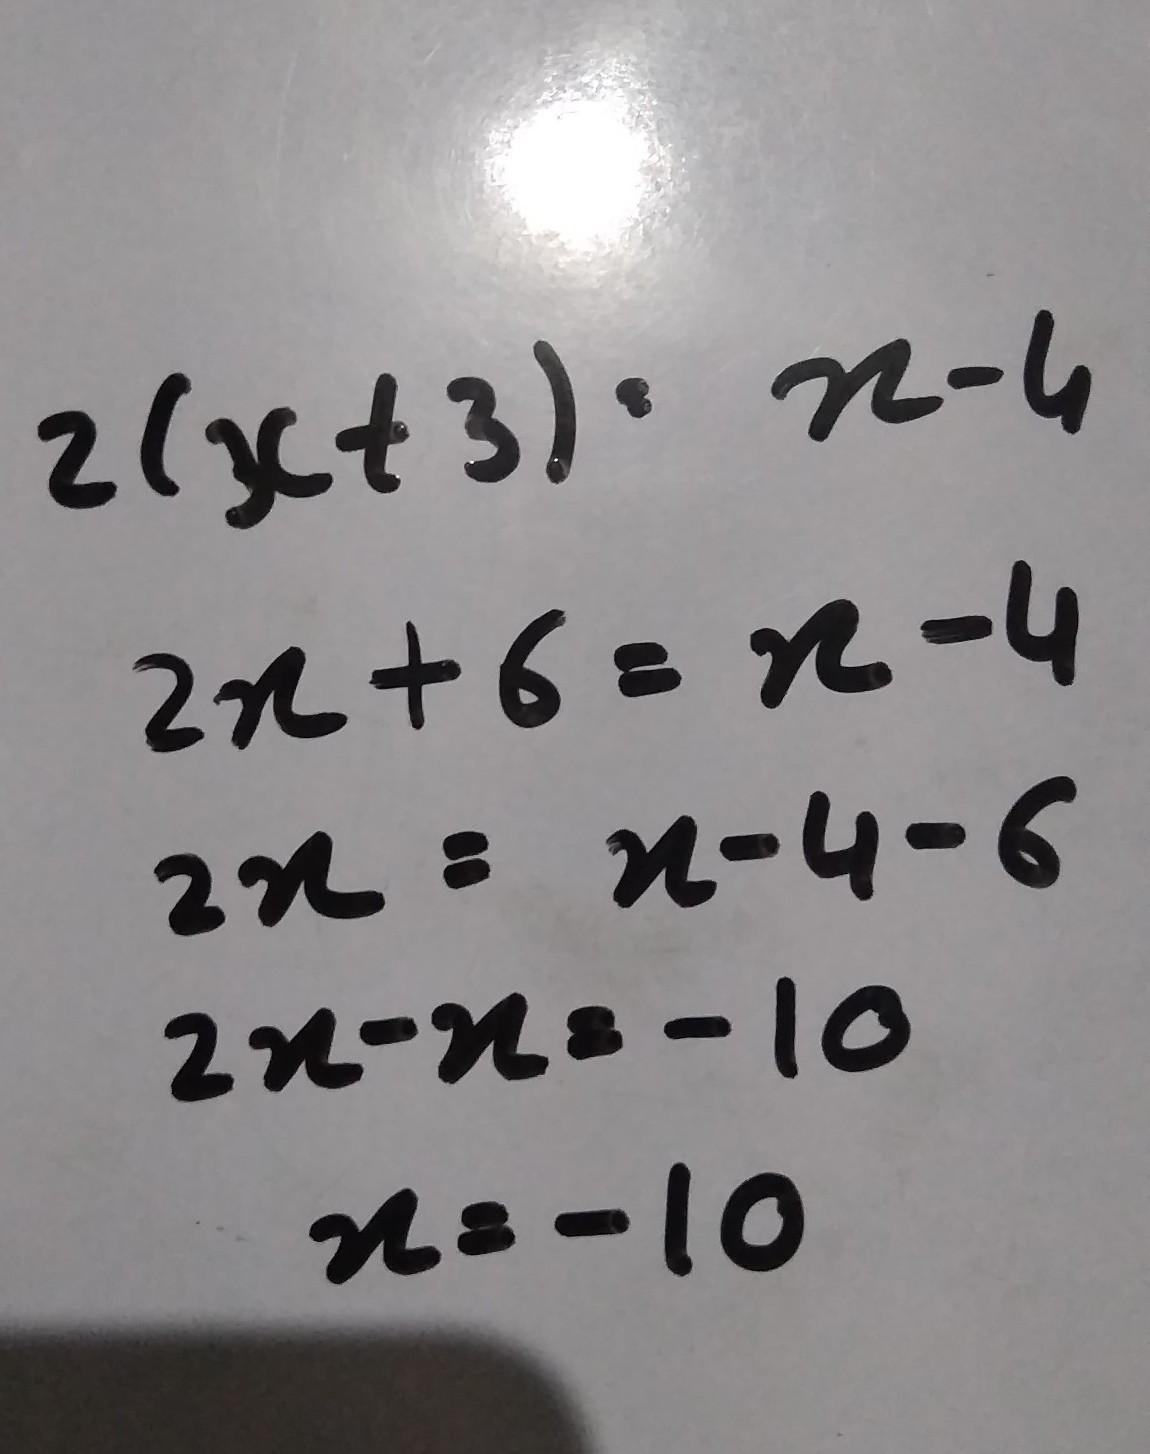 2(x+3) = x-4
2x+6 = x-4
2x = x-4-6
2x-x = -10
x = -10